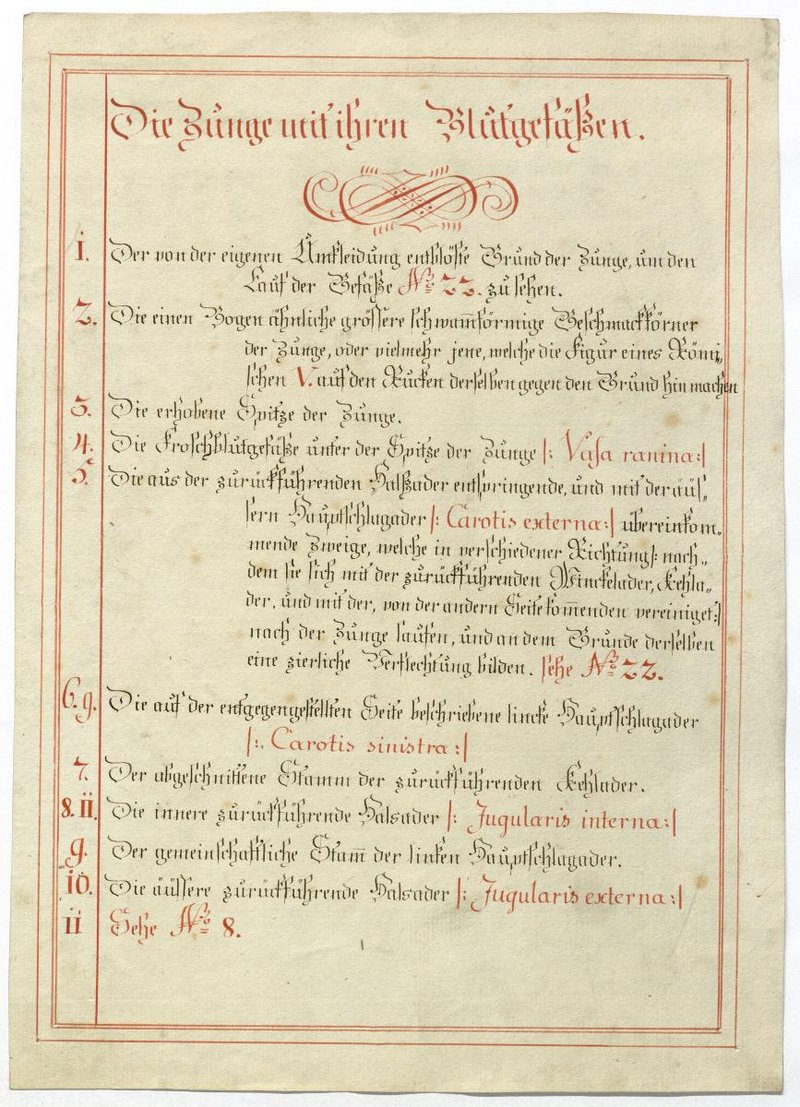 Die Zunge mit ihren Blutgefäßen.
1. Der von der eigenen Umkleidung entblößte Grund der Zunge, um den
Lauf der Gefäße No 22. zu sehen.
2. Die einen Bogen ähnliche grössere schwam̅förmige Geschmackkörner
der Zunge, oder vielmehr jene, welche die Figur eines Römi„
schen V. auf den Rucken derselben gegen den Grund hin machen
3. Die erhobene Spitze der Zunge.
4. Die Froschblutgefäße unter der Spitze der Zunge |: Vasa ranina:|
5. Die aus der zurückführenden Halßader entspringende, und mit der äus„
sern Hauptschlagader |: Carotis externa:| übereinkom„
mende Zweige, welche in verschiedener Richtung |: nach„
dem sie sich mit der zurückführenden Winckelader, Kehla„
der, und mit der, von der andern Seite kom̅enden vereiniget:|
nach der Zunge laufen, und an dem Grunde derselben
eine zierliche Verflechtung bilden. sehe No 22.
6. 9. Die auf der entgegengestellten Seite beschriebene lincke Hauptschlagader
|: Carotis sinistra:|
7. Der abgeschnittene Stamm der zurückführenden Kehlader.
8. 11. Die innere zurückführende Halsader |: Jugularis interna:|
9. Der gemeinschaftliche Stam̅ der linken Hauptschlagader.
10. Die äüssere zurückführende Halsader |: Jugularis externa:|
11 Sehe No 8.